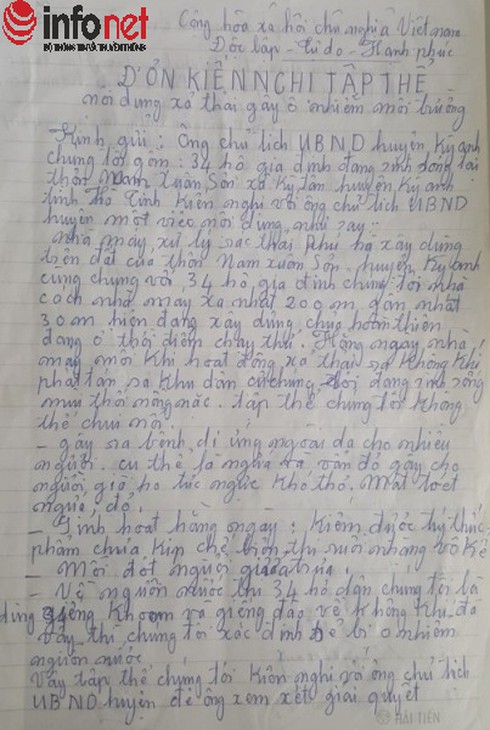 infonet
BỘ THÔNG TIN VÀ TRUYỀN THÔNG
Cộng hòa xã hội chủ nghĩa Việt nam
Độc lập - Tự do - Hạnh phúc
ĐƠN KIẾN NGHỊ TẬP THỂ
nội dung xả thải gây ô nhiễm môi trường
Kính gửi : Ông chủ tịch UBND huyện Kỳ anh
chúng tôi gồm : 34 hộ gia đình đang sinh sống tại
thôn Nam Xuân Sơn xã Kỳ tân huyện Kỳ anh
tỉnh Hà Tĩnh kiến nghị với ông chủ tịch UBND
huyện một việc nội dung như sau :
nhà máy xử lý rác thải Phú hà xây dựng
trên đất của thôn Nam xuân Sơn. huyện Kỳ anh
cùng chung với 34 hộ gia đình chúng tôi nhà
cách nhà máy xa nhất 200m gần nhất
30m hiện đang xây dựng chưa hoàn thiện
đang ở thời điểm chạy thử. Hằng ngày nhà
máy mỗi khi hoạt động xả thải ra không khí
phát tán ra khu dân cư chúng tôi đang sinh sống
mùi thối nồng nặc. tập thể chúng tôi không
thể chịu nổi
- gây ra bệnh dị ứng ngoài da cho nhiều
người. cụ thể là ngứa và vẩn đỏ gây cho
người già ho tức ngực khó thở. Mắt toét
ngứa, đỏ.
- Sinh hoạt hằng ngày : kiếm được tý thức
phẩm chưa kịp chế biến thì ruồi nhặng vô kể
- Mỗi đốt người
- Về nguồn nước thì 34 hộ dân chúng tôi là
dùng giếng khoan và giếng đào về không khí đã
vậy thì chúng tôi xác định dể bị ô nhiễm
nguồn nước
Vậy tập thể chúng tôi kiến nghị với ông chủ tịch
UBND huyện để ông xem xét giải quyết
HẢI TIẾN